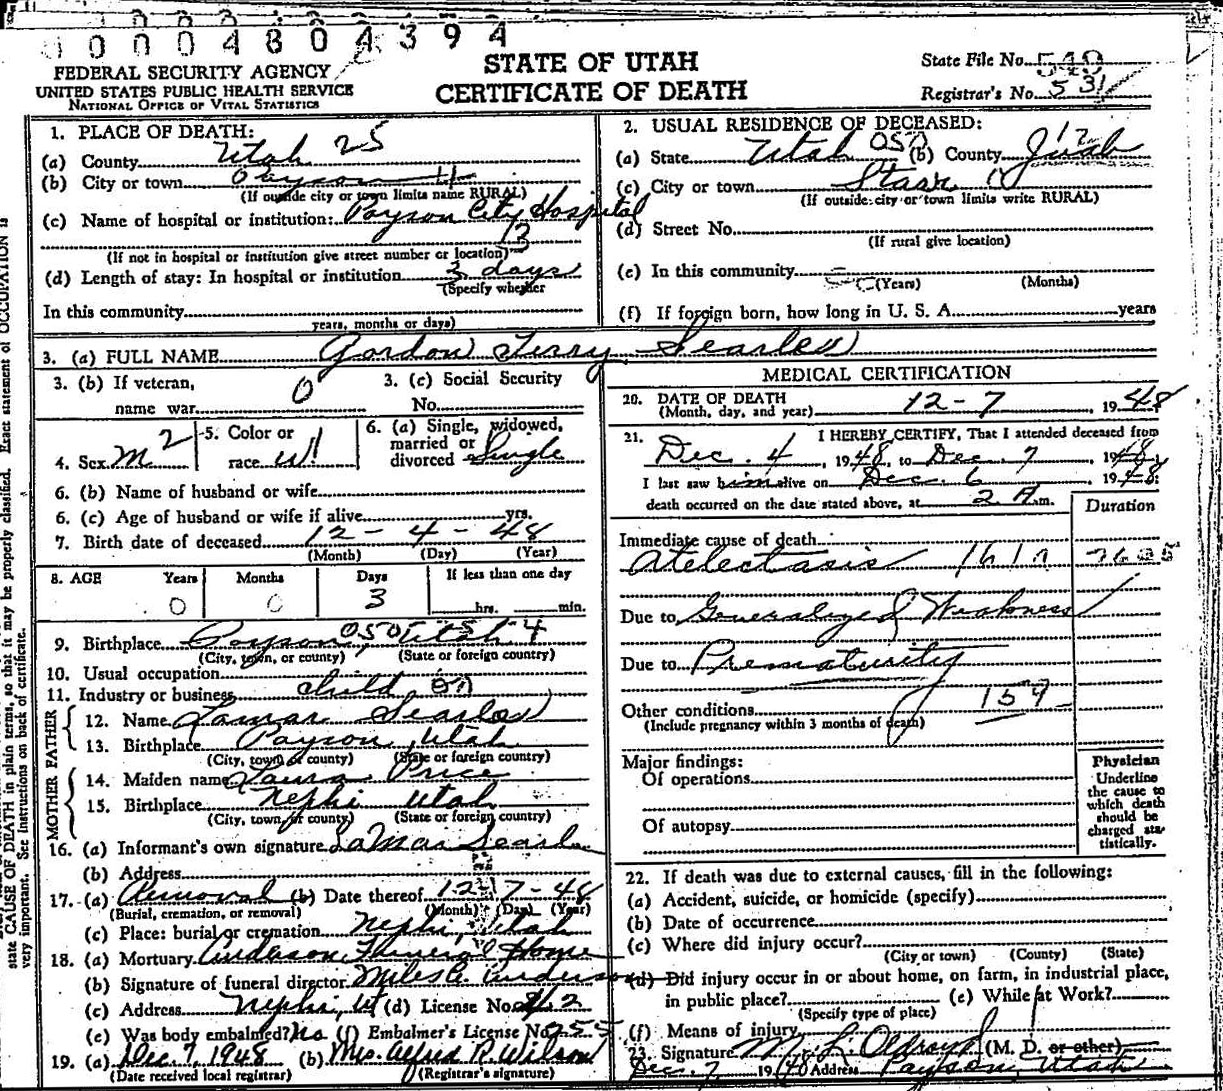 0000480 4394
FEDERAL SECURITY AGENCY
UNITED STATES PUBLIC HEALTH SERVICE
NATIONAL OFFICE OF VITAL STATISTICS
STATE OF UTAH
CERTIFICATE OF DEATH
State File No.
Registrar's No. 531
1. PLACE OF DEATH:
(a) County Utah 25
(b) City or town Payson
(If outside city or town limits name RURAL)
(c) Name of hospital or institution: Payson City Hospital
(If not in hospital or institution give street number or location)
(d) Length of stay: In hospital or institution 3 days
(Specify whether
In this community
years, months or days)
2. USUAL RESIDENCE OF DECEASED:
(a) State Utah (b) County Juab
(c) City or town Starr
(If outside city or town limits write RURAL)
(d) Street No.
(If rural give location)
(e) In this community
(Years) (Months)
(f) If foreign born, how long in U. S. A. years
3. (a) FULL NAME Gordon Terry Searles
3. (b) If veteran, 0
name war
3. (c) Social Security
No.
4. Sex M 2
5. Color or
race W
6. (a) Single, widowed,
married or
divorced Single
6. (b) Name of husband or wife
6. (c) Age of husband or wife if alive yrs.
7. Birth date of deceased 12 - 4 - 48
(Month) (Day) (Year)
8. AGE Years Months Days If less than one day
0 0 3 hrs. min.
9. Birthplace Payson, Utah
(City, town, or county) (State or foreign country)
10. Usual occupation
11. Industry or business child
FATHER
12. Name Lamar Searles
13. Birthplace Payson, Utah
(City, town or county) (State or foreign country)
MOTHER
14. Maiden name Laura Price
15. Birthplace Nephi Utah
(City, town, or county) (State or foreign country)
16. (a) Informant's own signature LaMar Searle
(b) Address
17. (a) Removal (b) Date thereof 12-7-48
(Burial, cremation, or removal) (Month) (Day) (Year)
(c) Place: burial or cremation Nephi, Utah
18. (a) Mortuary Anderson Funeral Home
(b) Signature of funeral director Miles A. Anderson
(c) Address Nephi, Ut (d) License No.
(e) Was body embalmed? No (f) Embalmer's License No. 255
19. (a) Dec. 9, 1948 (b) Mrs. Alfred R. Wilson
(Date received local registrar) (Registrar's signature)
MEDICAL CERTIFICATION
20. DATE OF DEATH
(Month, day, and year) 12-7, 1948
21. I HEREBY CERTIFY, That I attended deceased from
Dec. 4, 1948, to Dec. 7 1948
I last saw him alive on Dec. 6 1948
death occurred on the date stated above, at 2 A. m.
Duration
Immediate cause of death
Atelectasis
Due to Generalized Weakness
Due to Prematurity
Other conditions 159
(Include pregnancy within 3 months of death)
Major findings:
Of operations
Of autopsy
Physician
Underline
the cause to
which death
should be
charged sta-
tistically.
22. If death was due to external causes, fill in the following:
(a) Accident, suicide, or homicide (specify)
(b) Date of occurrence
(c) Where did injury occur?
(City or town) (County) (State)
(d) Did injury occur in or about home, on farm, in industrial place,
in public place? (e) While at Work?
(Specify type of place)
(f) Means of injury
23. Signature M. L. Oldroyd (M. D. or other)
Dec. 7, 1948 Address Payson, Utah
state CAUSE OF DEATH in plain terms, so that it may be properly classified. Exact statement of OCCUPATION is
very important. See instructions on back of certificate.